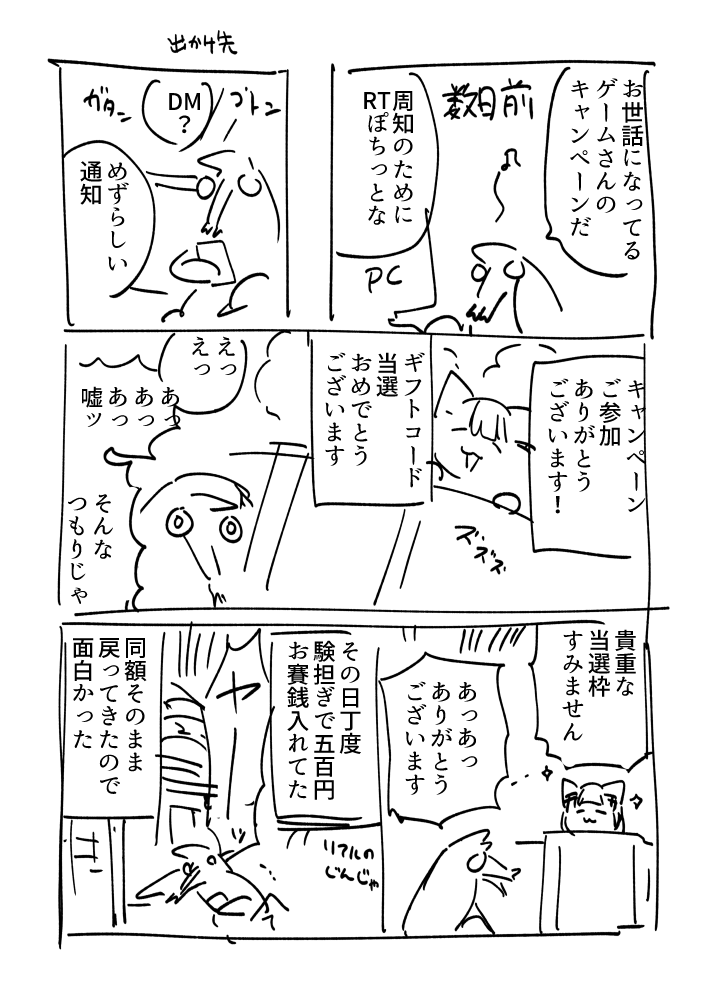 お世話になってる
ゲームさんの
キャンペーンだ
数日前
周知のために
RTぽちっとな
PC
出かけ先
ゴトン
DM
？
ガタン
めずらしい
通知
キャンペーン
ご参加
ありがとう
ございます！
ズズズ
ギフトコード
当選
おめでとう
ございます
えっ
えっ
あっ
あっ
あっ
嘘ッ
そんな
つもりじゃ
貴重な
当選枠
すみません
あっあっ
ありがとう
ございます
その日丁度
験担ぎで五百円
お賽銭入れてた
リアルの
じんじゃ
ヤー
同額そのまま
戻ってきたので
面白かった